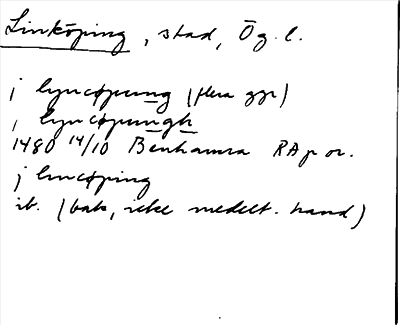 Linköping, stad, Ög. l.
j lyncøpung (flera ggr)
j lyncøpungh
1480 14/10 Benhamra RAp or.
j lincøping
ib. (baks, icke medelt. hand)